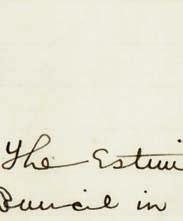 The Estim
Council in